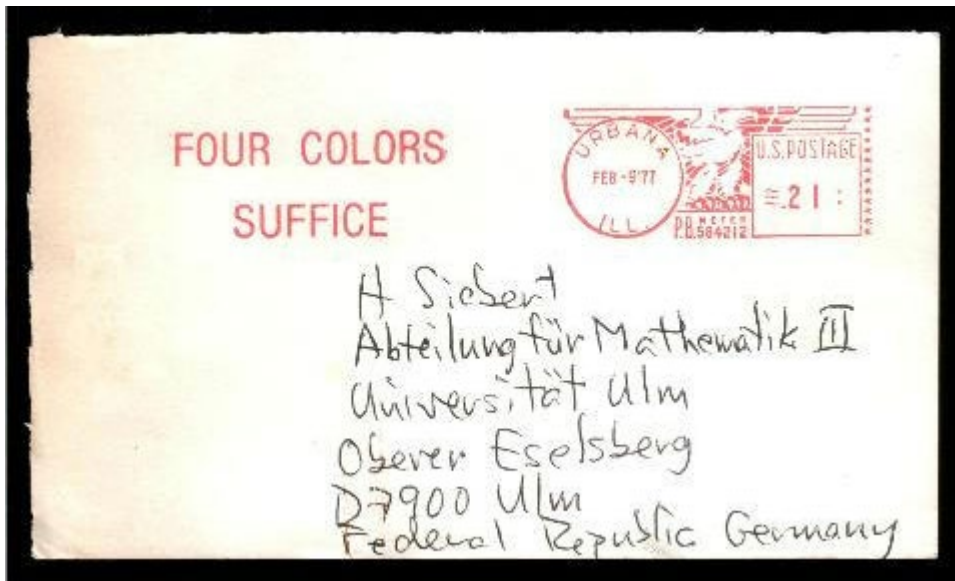 FOUR COLORS
SUFFICE
URBANA
FEB -9'77
ILL.
P.B. METER
584212
U.S. POSTAGE
.21
H Siebert
Abteilung für Mathematik III
Universität Ulm
Oberer Eselsberg
D7900 Ulm
Federal Republic Germany